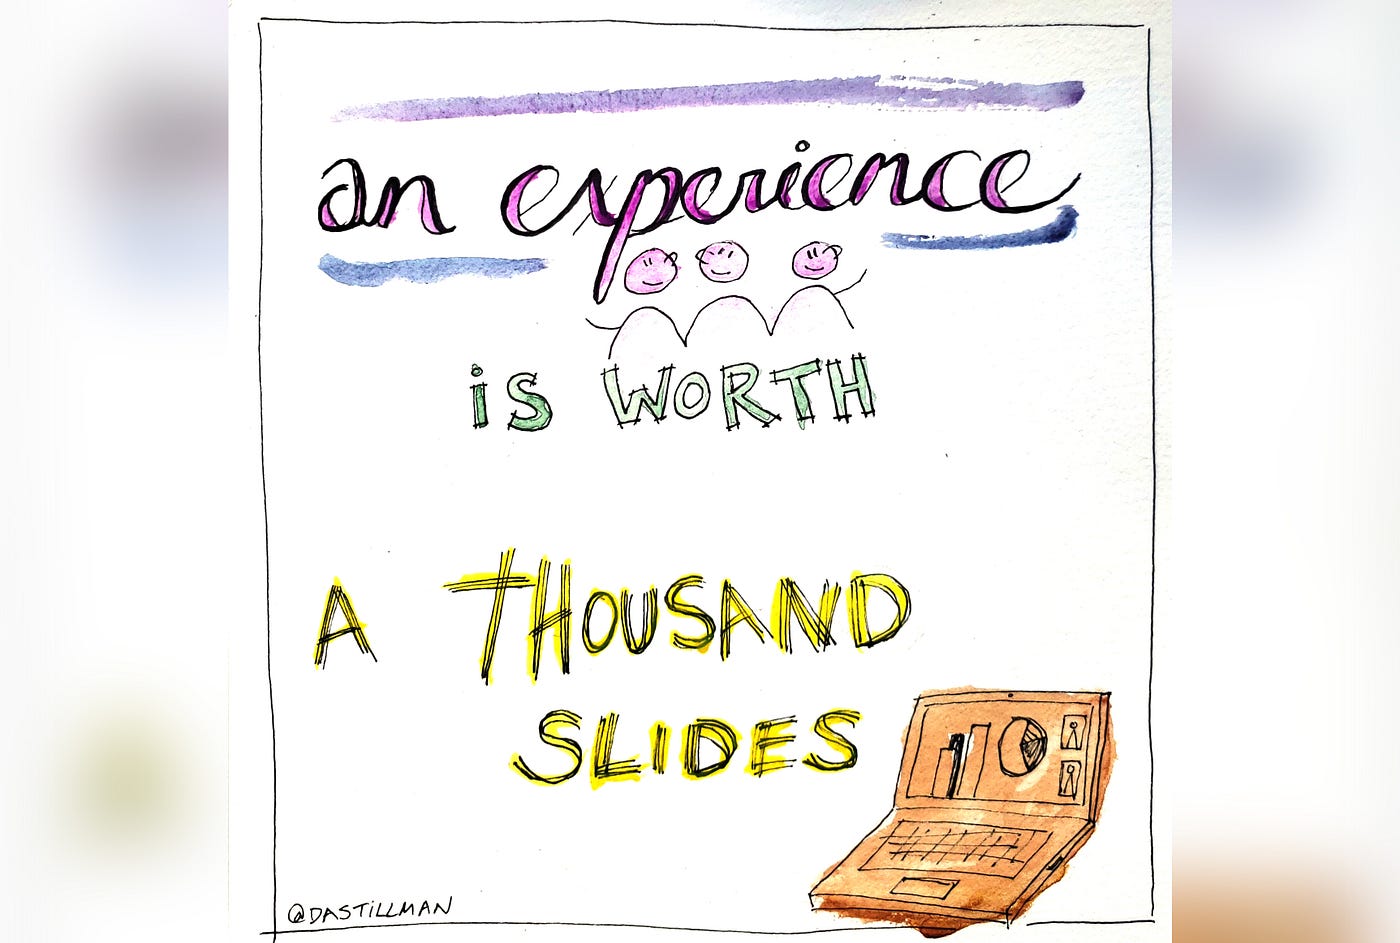 an experience
is WORTH
A THOUSAND
SLIDES
@DASTILLMAN